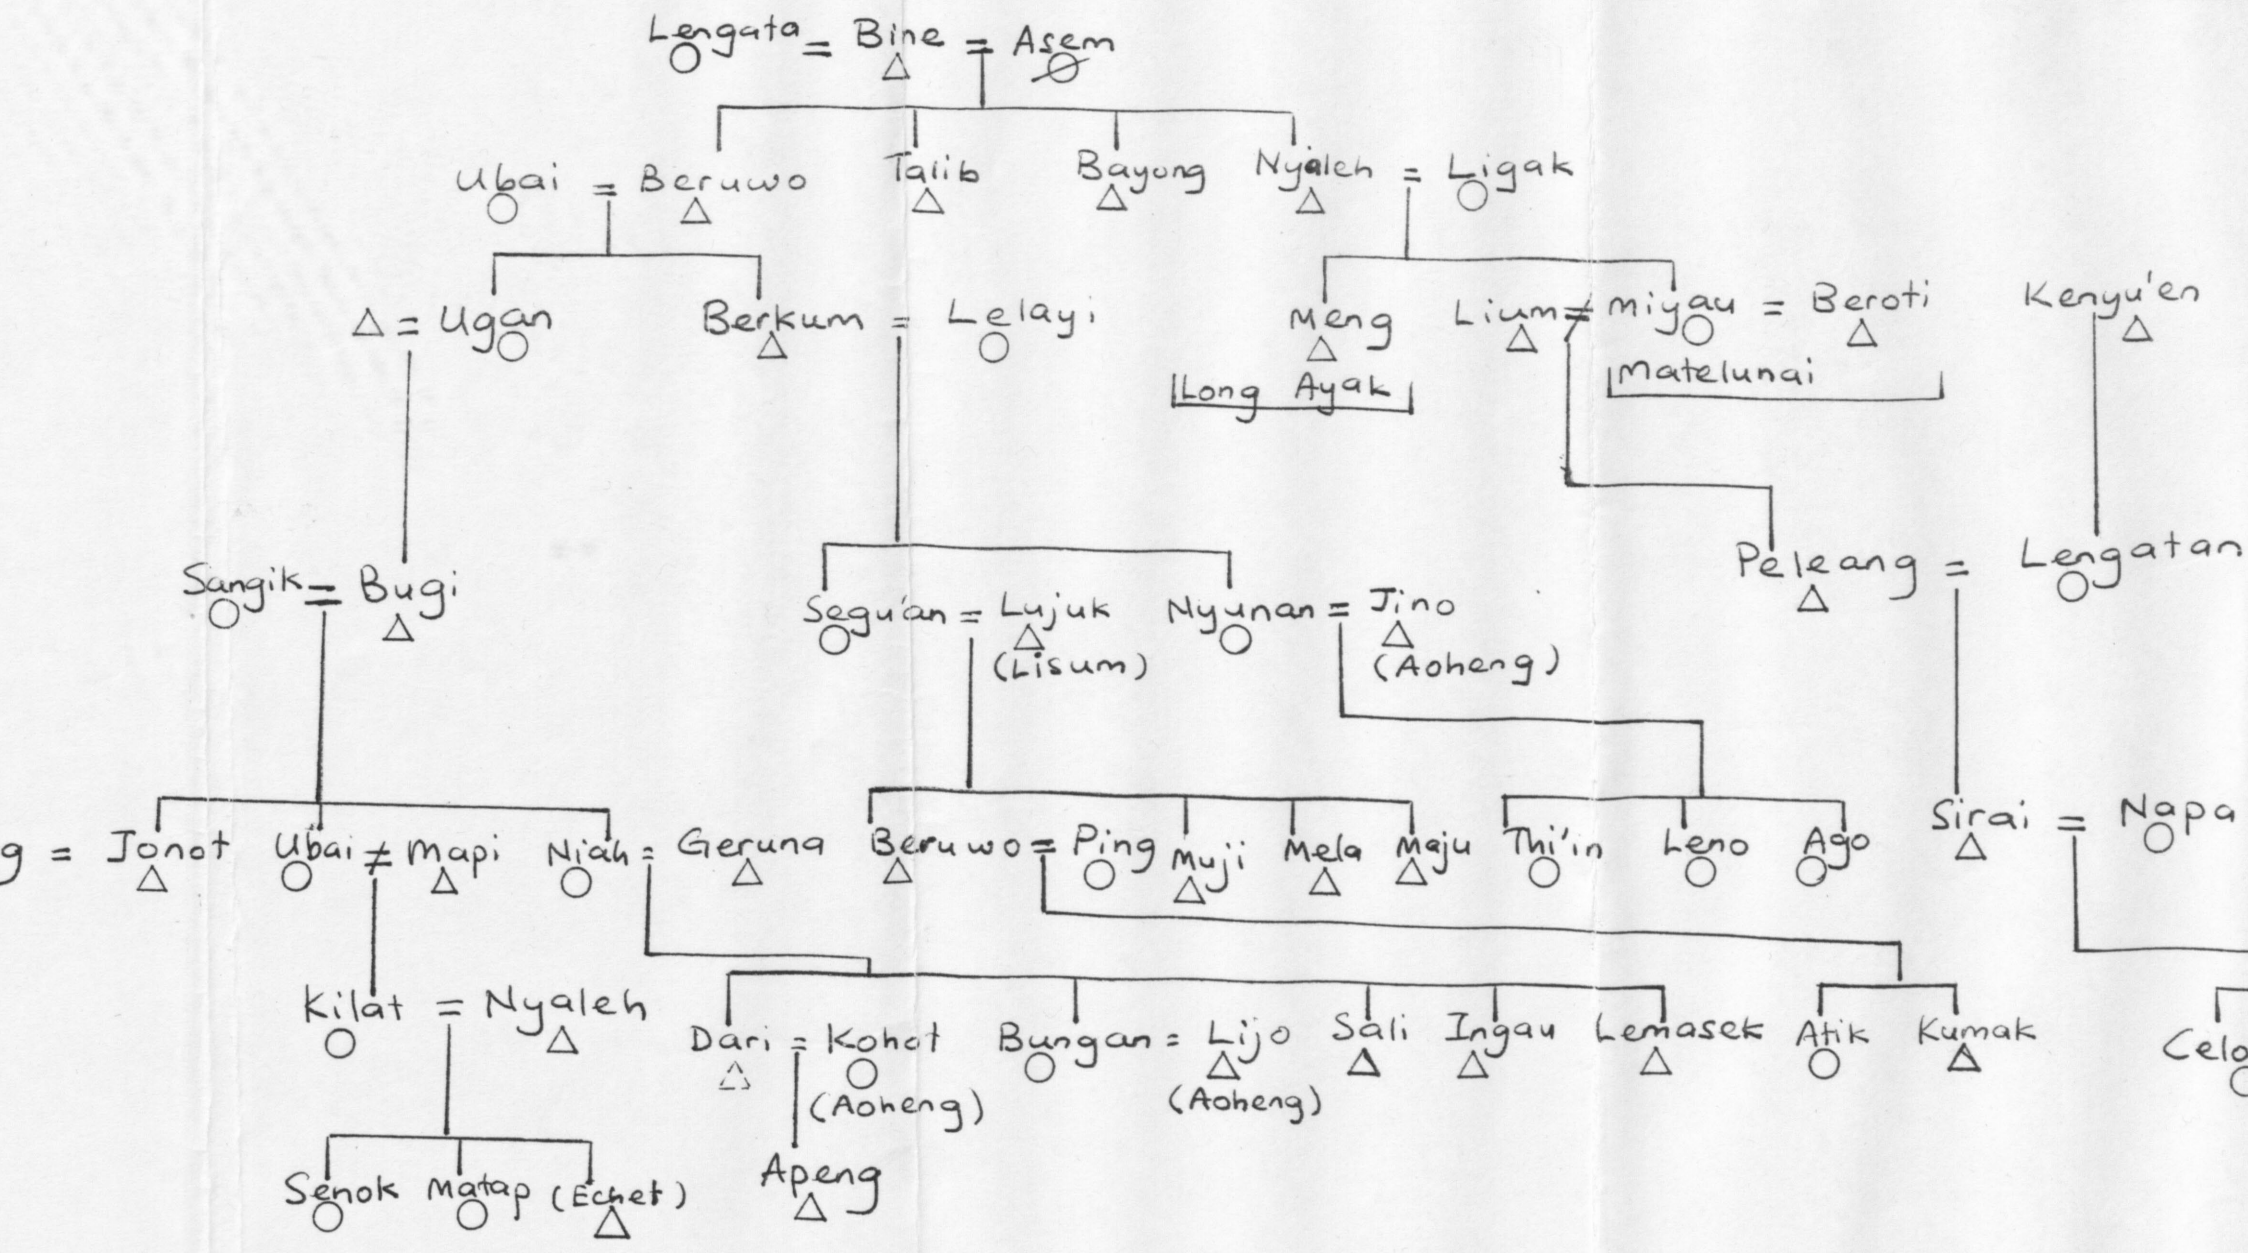 Lengata = Bine = Asem
Ubai = Beruwo Talib Bayong Nyaleh = Ligak
= Ugan Berkum = Lelayi Meng Lium ≠ Miyau = Beroti Kenyu'en
Long Ayak Matelunai
Sangik = Bugi Segu'an = Lujuk Nyunan = Jino Peleang = Lengatan
(Lisum) (Aoheng)
g = Jonot Ubai ≠ Mapi Niah = Geruna Beruwo = Ping Muji Mela Maju Thi'in Leno Ago Sirai = Napa
Kilat = Nyaleh Dari = Kohot Bungan = Lijo Sali Ingau Lemasek Atik Kumak Celo
(Aoheng) (Aoheng)
Senok Matap (Echet) Apeng